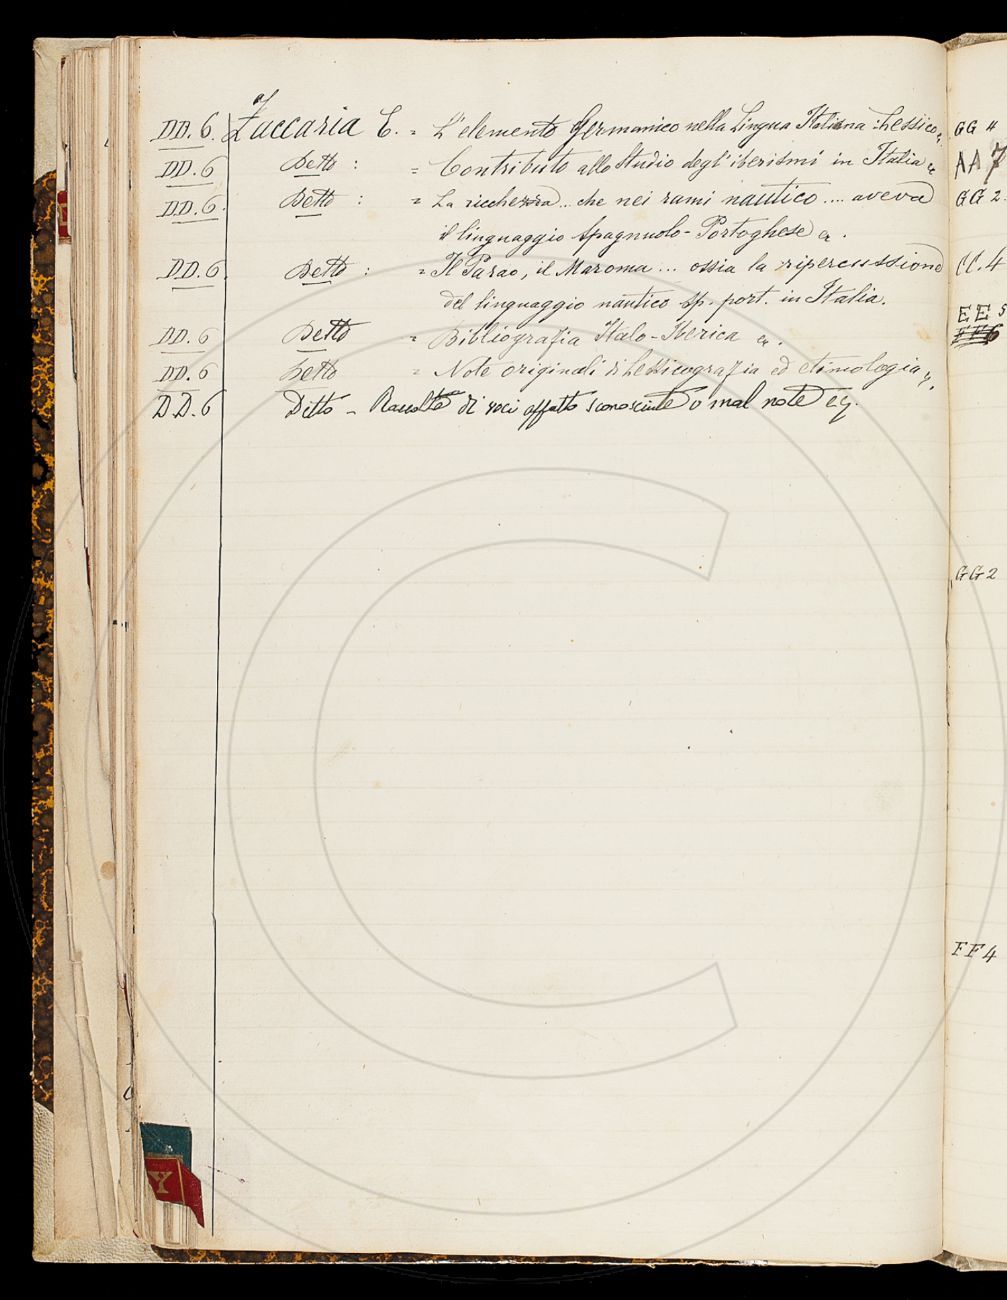 DD. 6. Zaccaria E. = L'elemento Germanico nella lingua Italiana: Lessico
DD. 6 Detto : = Contributo allo Studio degl'iberismi in Italia &
DD. 6. Detto : = La ricchezza... che nei rami nautico.... aveva
il linguaggio Spagnuolo-Portoghese &.
DD. 6. Detto : = Il Parao, il Maroma... ossia la ripercussione
del linguaggio nautico sp. port. in Italia.
DD. 6 Detto = Bibliografia Italo-Iberica &.
DD. 6 Detto = Note originali di Lessicografia ed etimologia
DD. 6 Ditto - Raccolta di voci affatto sconosciute o mal note
GG 4
AA 7
GG 2.
CC. 4
EE 5
GG 2
FF 4
Y